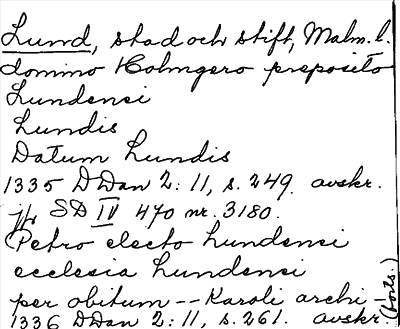 Lund, stad och stift, Malm. l.
domino Holmgero preposito
Lundensi
Lundis
Datum Lundis
1335 DDan 2: 11, s. 249. avskr.
jfr SD IV 470 nr. 3180.
Petro electo Lundensi
ecclesia Lundensi
per obitum -- Karoli archi -
1336 DDan 2: 11, s. 261. avskr.
(forts.)